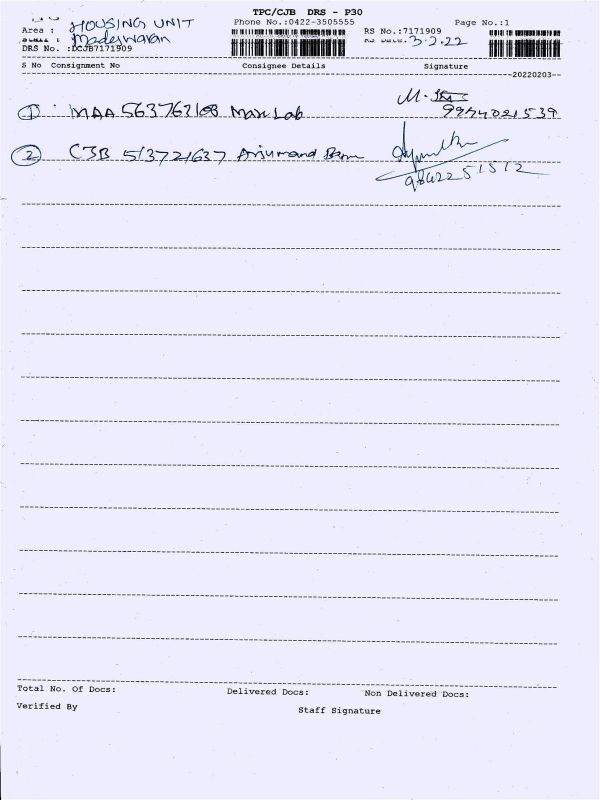 TPC/CJB DRS - P30
HOUSING UNIT
Phone No.:0422-3505555
Page No.:1
Area :
RS No.:7171909
3-2-22
DRS No. :DCJB7171909
S No Consignment No Consignee Details Signature
--20220203--
1 MAA 563763168 Max Lab 9994021539
2 CJB 513721637 9842251512
Total No. Of Docs: Delivered Docs: Non Delivered Docs:
Verified By Staff Signature